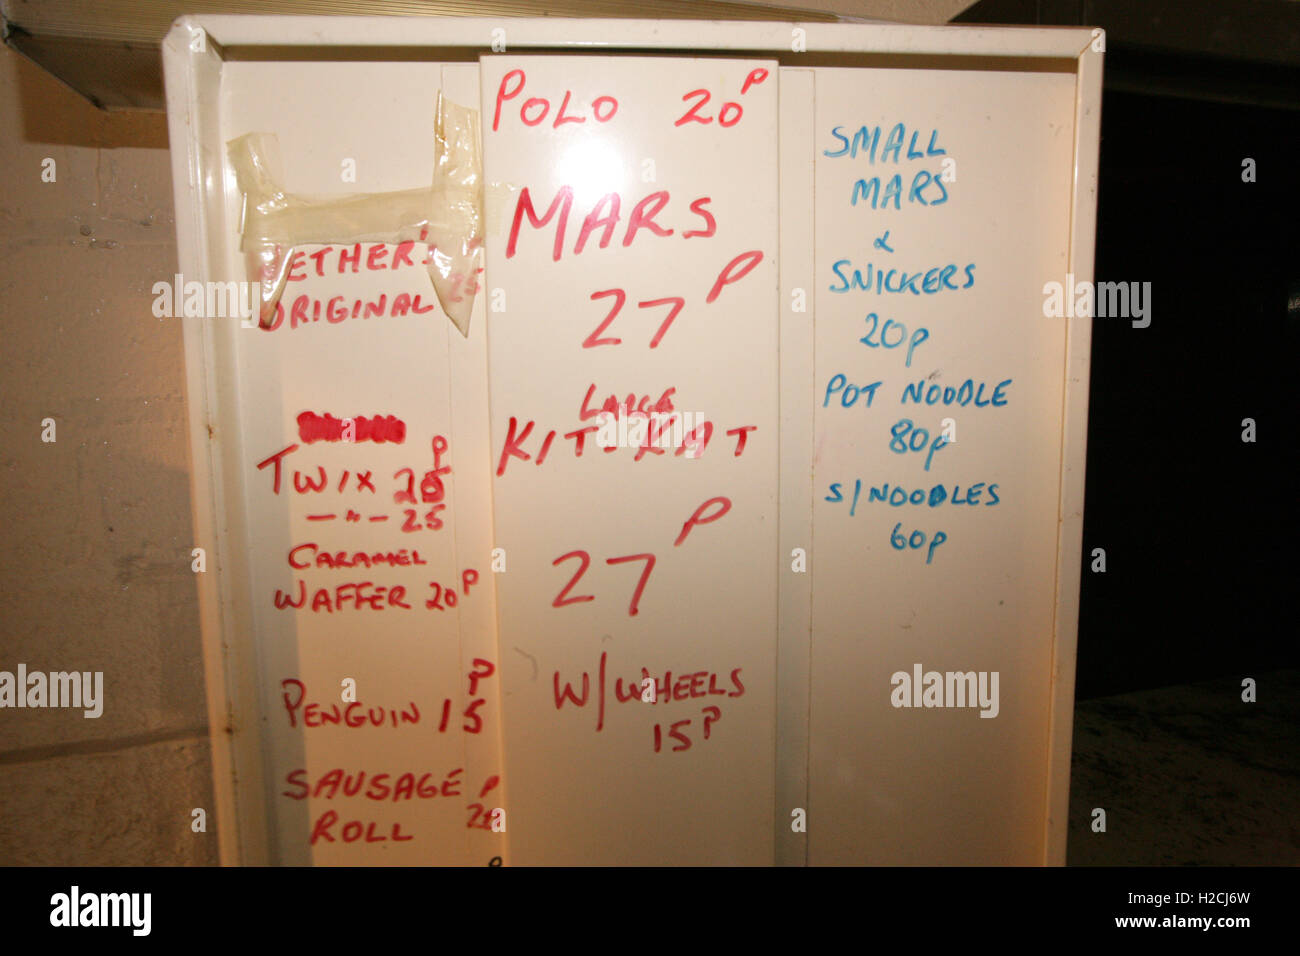 ETHER'S 25
ORIGINAL
TWIX P
— " — 25
CARAMEL
WAFFER 20P
PENGUIN 15P
SAUSAGE P
ROLL
POLO 20P
MARS
27P
LARGE
KIT-KAT
27P
W/WHEELS
15P
SMALL
MARS
&
SNICKERS
20p
POT NOODLE
80p
S/NOODLES
60p
alamy
a
alamy
www.alamy.com
Image ID: H2CJ6W